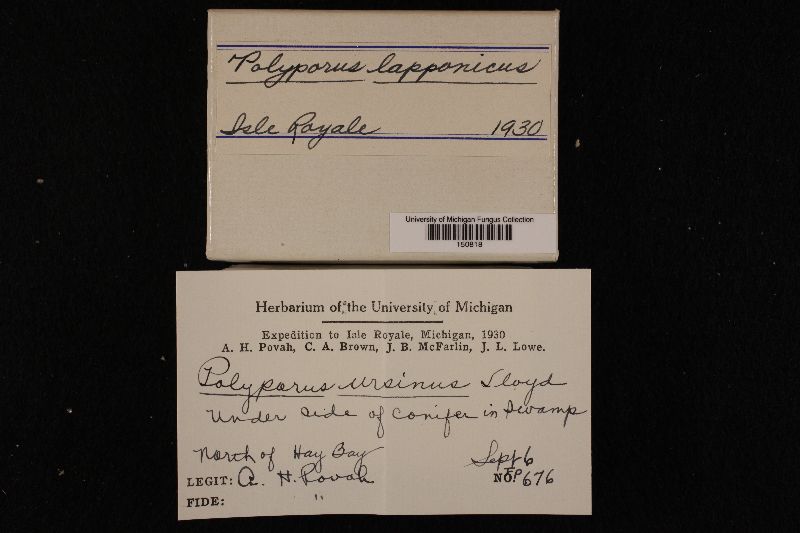 Polyporus lapponicus
Isle Royale 1930
University of Michigan Fungus Collection
150818
Herbarium of the University of Michigan
Expedition to Isle Royale, Michigan, 1930
A. H. Povah, C. A. Brown, J. B. McFarlin, J. L. Lowe.
Polyporus ursinus Lloyd
Under side of conifer in swamp
North of Hay Bay Sept 6
LEGIT: A. H. Povah NO. 676
FIDE: "